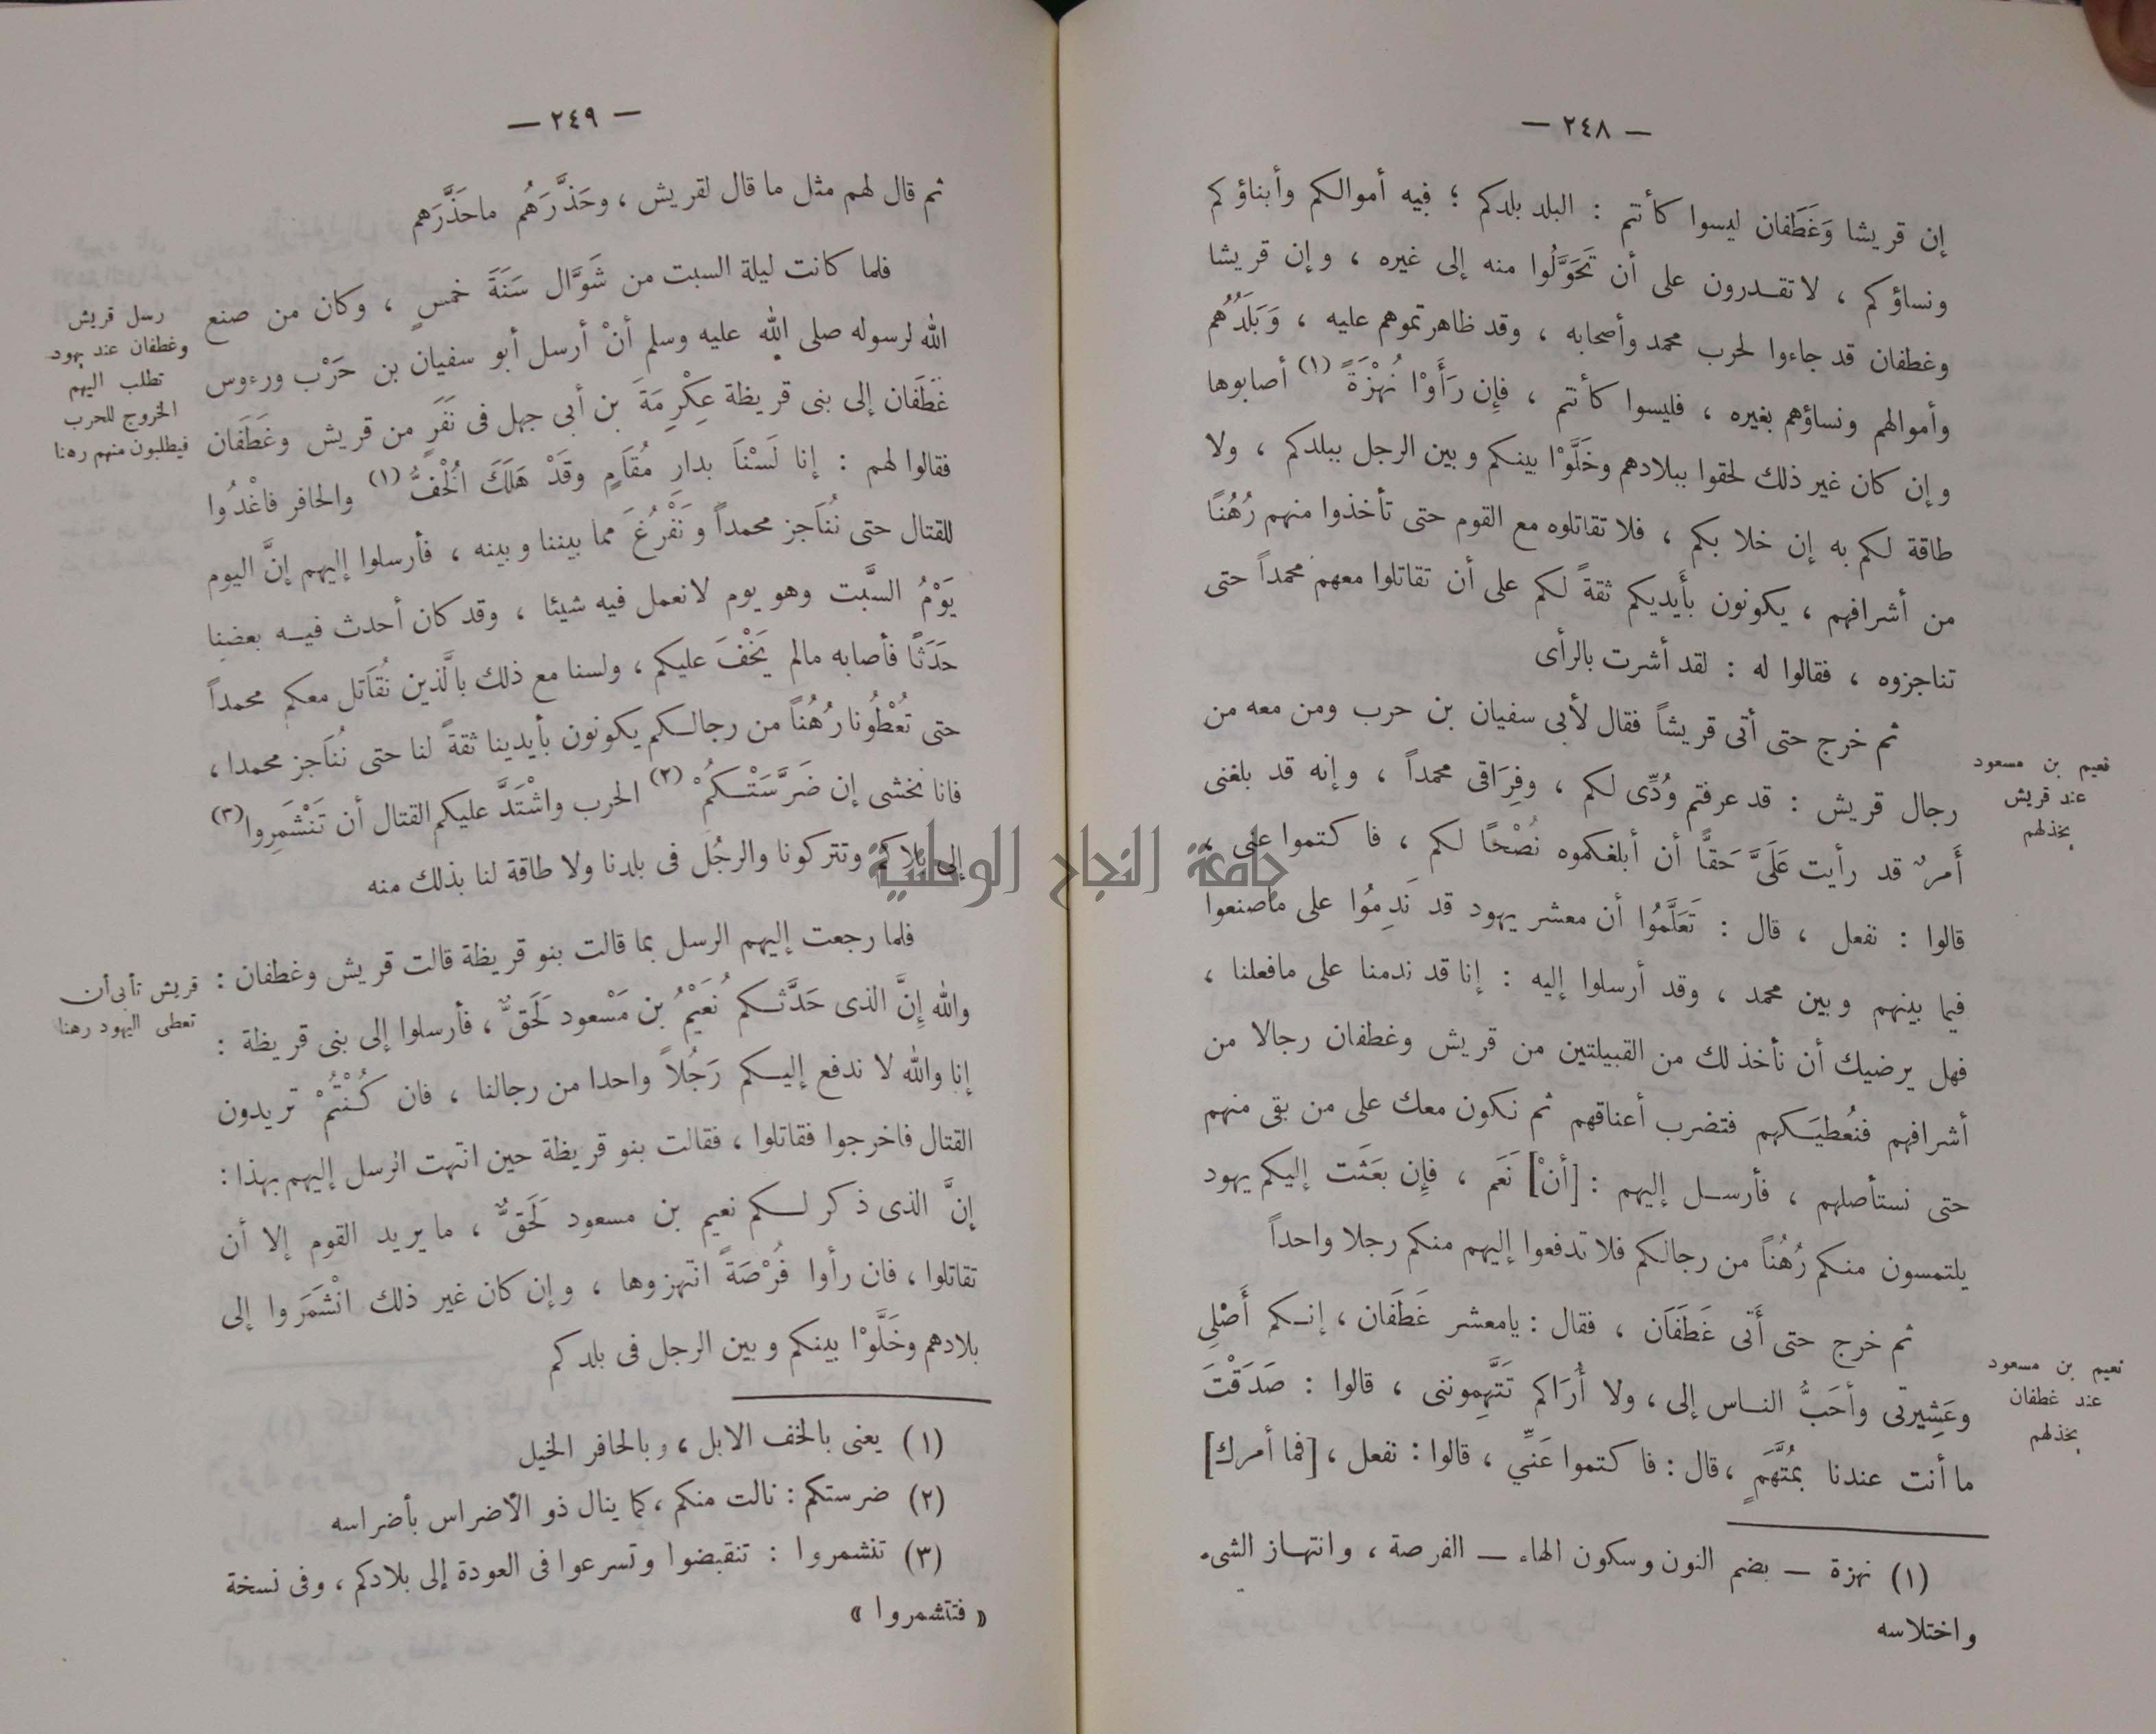 — ٢٤٨ —
إن قريشا وَغَطَفان ليسوا كأنتم : البلد بلدكم ؛ فيه أموالكم وأبناؤكم
ونساؤكم ، لا تقدرون على أن تَحَوَّلُوا منه إلى غيره ، وإن قريشا
وغطفان قد جاءوا لحرب محمد وأصحابه ، وقد ظاهرتموهم عليه ، وَبَلَدُهُم
وأموالهم ونساؤهم بغيره ، فليسوا كأنتم ، فإن رَأَوْا نُهْزَةً (١) أصابوها
وإن كان غير ذلك لحقوا ببلادهم وخَلَّوْا بينكم وبين الرجل ببلدكم ، ولا
طاقة لكم به إن خلا بكم ، فلا تقاتلوه مع القوم حتى تأخذوا منهم رُهُنًا
من أشرافهم ، يكونون بأَيديكم ثقةً لكم على أن تقاتلوا معهم محمداً حتى
تناجزوه ، فقالوا له : لقد أشرت بالرأى
ثم خرج حتى أتى قريشاً فقال لأبى سفيان بن حرب ومن معه من
رجال قريش : قد عرفتم وُدِّى لكم ، وفِرَاقى محمداً ، وإنه قد بلغنى
أَمرٌ قد رأيت عَلَىَّ حَقًّا أن أبلغكموه نُصْحًا لكم ، فاكتموا على ،
قالوا : نفعل ، قال : تَعَلَّمُوا أن معشر يهود قد نَدِمُوا على ما صنعوا
فيما بينهم وبين محمد ، وقد أرسلوا إليه : إنا قد ندمنا على مافعلنا ،
فهل يرضيك أن نأخذ لك من القبيلتين من قريش وغطفان رجالا من
أشرافهم فنُعطيَكهم فتضرب أعناقهم ثم نكون معك على من بقى منهم
حتى نستأصلهم ، فأرسل إليهم : [أنْ] نَعَم ، فإِن بعَثَت إليكم يهود
يلتمسون منكم رُهُناً من رجالكم فلا تدفعوا إليهم منكم رجلا واحداً
ثم خرج حتى أَتى غَطَفَان ، فقال : يامعشر غَطَفَان ، إنكم أَصْلِى
وعَشِيرتى وأحَبُّ الناس إلى ، ولا أُرَاكم تَتَّهِموننى ، قالوا : صَدَقْتَ
ما أنت عندنا بمُتَّهَمٍ ، قال : فاكتموا عَنِّي ، قالوا : نفعل ، [فما أمرك]
نعيم بن مسعود
عند قريش
يخذلهم
نعيم بن مسعود
عند غطفان
يخذلهم
(١) نهزة — بضم النون وسكون الهاء — الفرصة ، وانتهاز الشىء
واختلاسه
— ٢٤٩ —
ثم قال لهم مثل ما قال لقريش ، وحَذَّرَهُم ماحَذَّرَهم
فلما كانت ليلة السبت من شَوَّال سَنَةَ خمسٍ ، وكان من صنع
الله لرسوله صلى الله عليه وسلم أنْ أرسل أبو سفيان بن حَرْب ورءوس
غَطَفَان إلى بنى قريظة عِكْرِمَةَ بن أبى جهل فى نَفَرٍ من قريش وغَطَفَان
فقالوا لهم : إنا لَسْنَا بدارِ مُقاَمٍ وقَدْ هَلَكَ الُخْفُّ (١) والحافر فاغْدُوا
للقتال حتى نُنَاجز محمداً وَنَفْرُغَ مما بيننا وبينه ، فأرسلوا إليهم إنَّ اليوم
يَوْمُ السَّبت وهو يوم لانعمل فيه شيئا ، وقد كان أحدث فيه بعضنا
حَدَثًا فأصابه مالم يَخْفَ عليكم ، ولسنا مع ذلك بالَّذين نُقَاتل معكم محمداً
حتى تُعْطُونا رُهُناً من رجالكم يكونون بأيدينا ثقةً لنا حتى نُنَاجز محمدا ،
فانا نخشى إن ضَرَّسَتْكُمْ (٢) الحرب واشْتَدَّ عليكم القتال أن تَنْشَمِروا (٣)
إلى بلادكم وتتركونا والرجُلَ فى بلدنا ولا طاقة لنا بذلك منه
فلما رجعت إليهم الرسل بما قالت بنو قريظة قالت قريش وغطفان :
والله إنَّ الذى حَدَّثكم نُعَيْمُ بن مَسْعود لَحَقٌّ ، فأرسلوا إلى بنى قريظة :
إنا والله لا ندفع إليكم رَجُلاً واحدا من رجالنا ، فان كُنْتُمْ تريدون
القتال فاخرجوا فقاتلوا ، فقالت بنو قريظة حين انتهت الرسل إليهم بهذا :
إنَّ الذى ذكر لكم نعيم بن مسعود لَحَقٌّ ، ما يريد القوم إلا أن
تقاتلوا ، فان رأوا فُرْصَةً انتهزوها ، وإن كان غير ذلك انْشَمَروا إلى
بلادهم وخَلَّوْا بينكم وبين الرجل فى بلدكم
رسل قريش
وغطفان عند يهود
تطلب اليهم
الخروج للحرب
فيطلبون منهم رهنا
قريش تأبى أن
تعطى اليهود رهنا
(١) يعنى بالخف الابل ، وبالحافر الخيل
(٢) ضرستكم : نالت منكم ، كما ينال ذو الأضراس بأضراسه
(٣) تنشمروا : تنقبضوا وتسرعوا فى العودة إلى بلادكم ، وفى نسخة
« فتتشمروا »
جامعة النجاح الوطنية